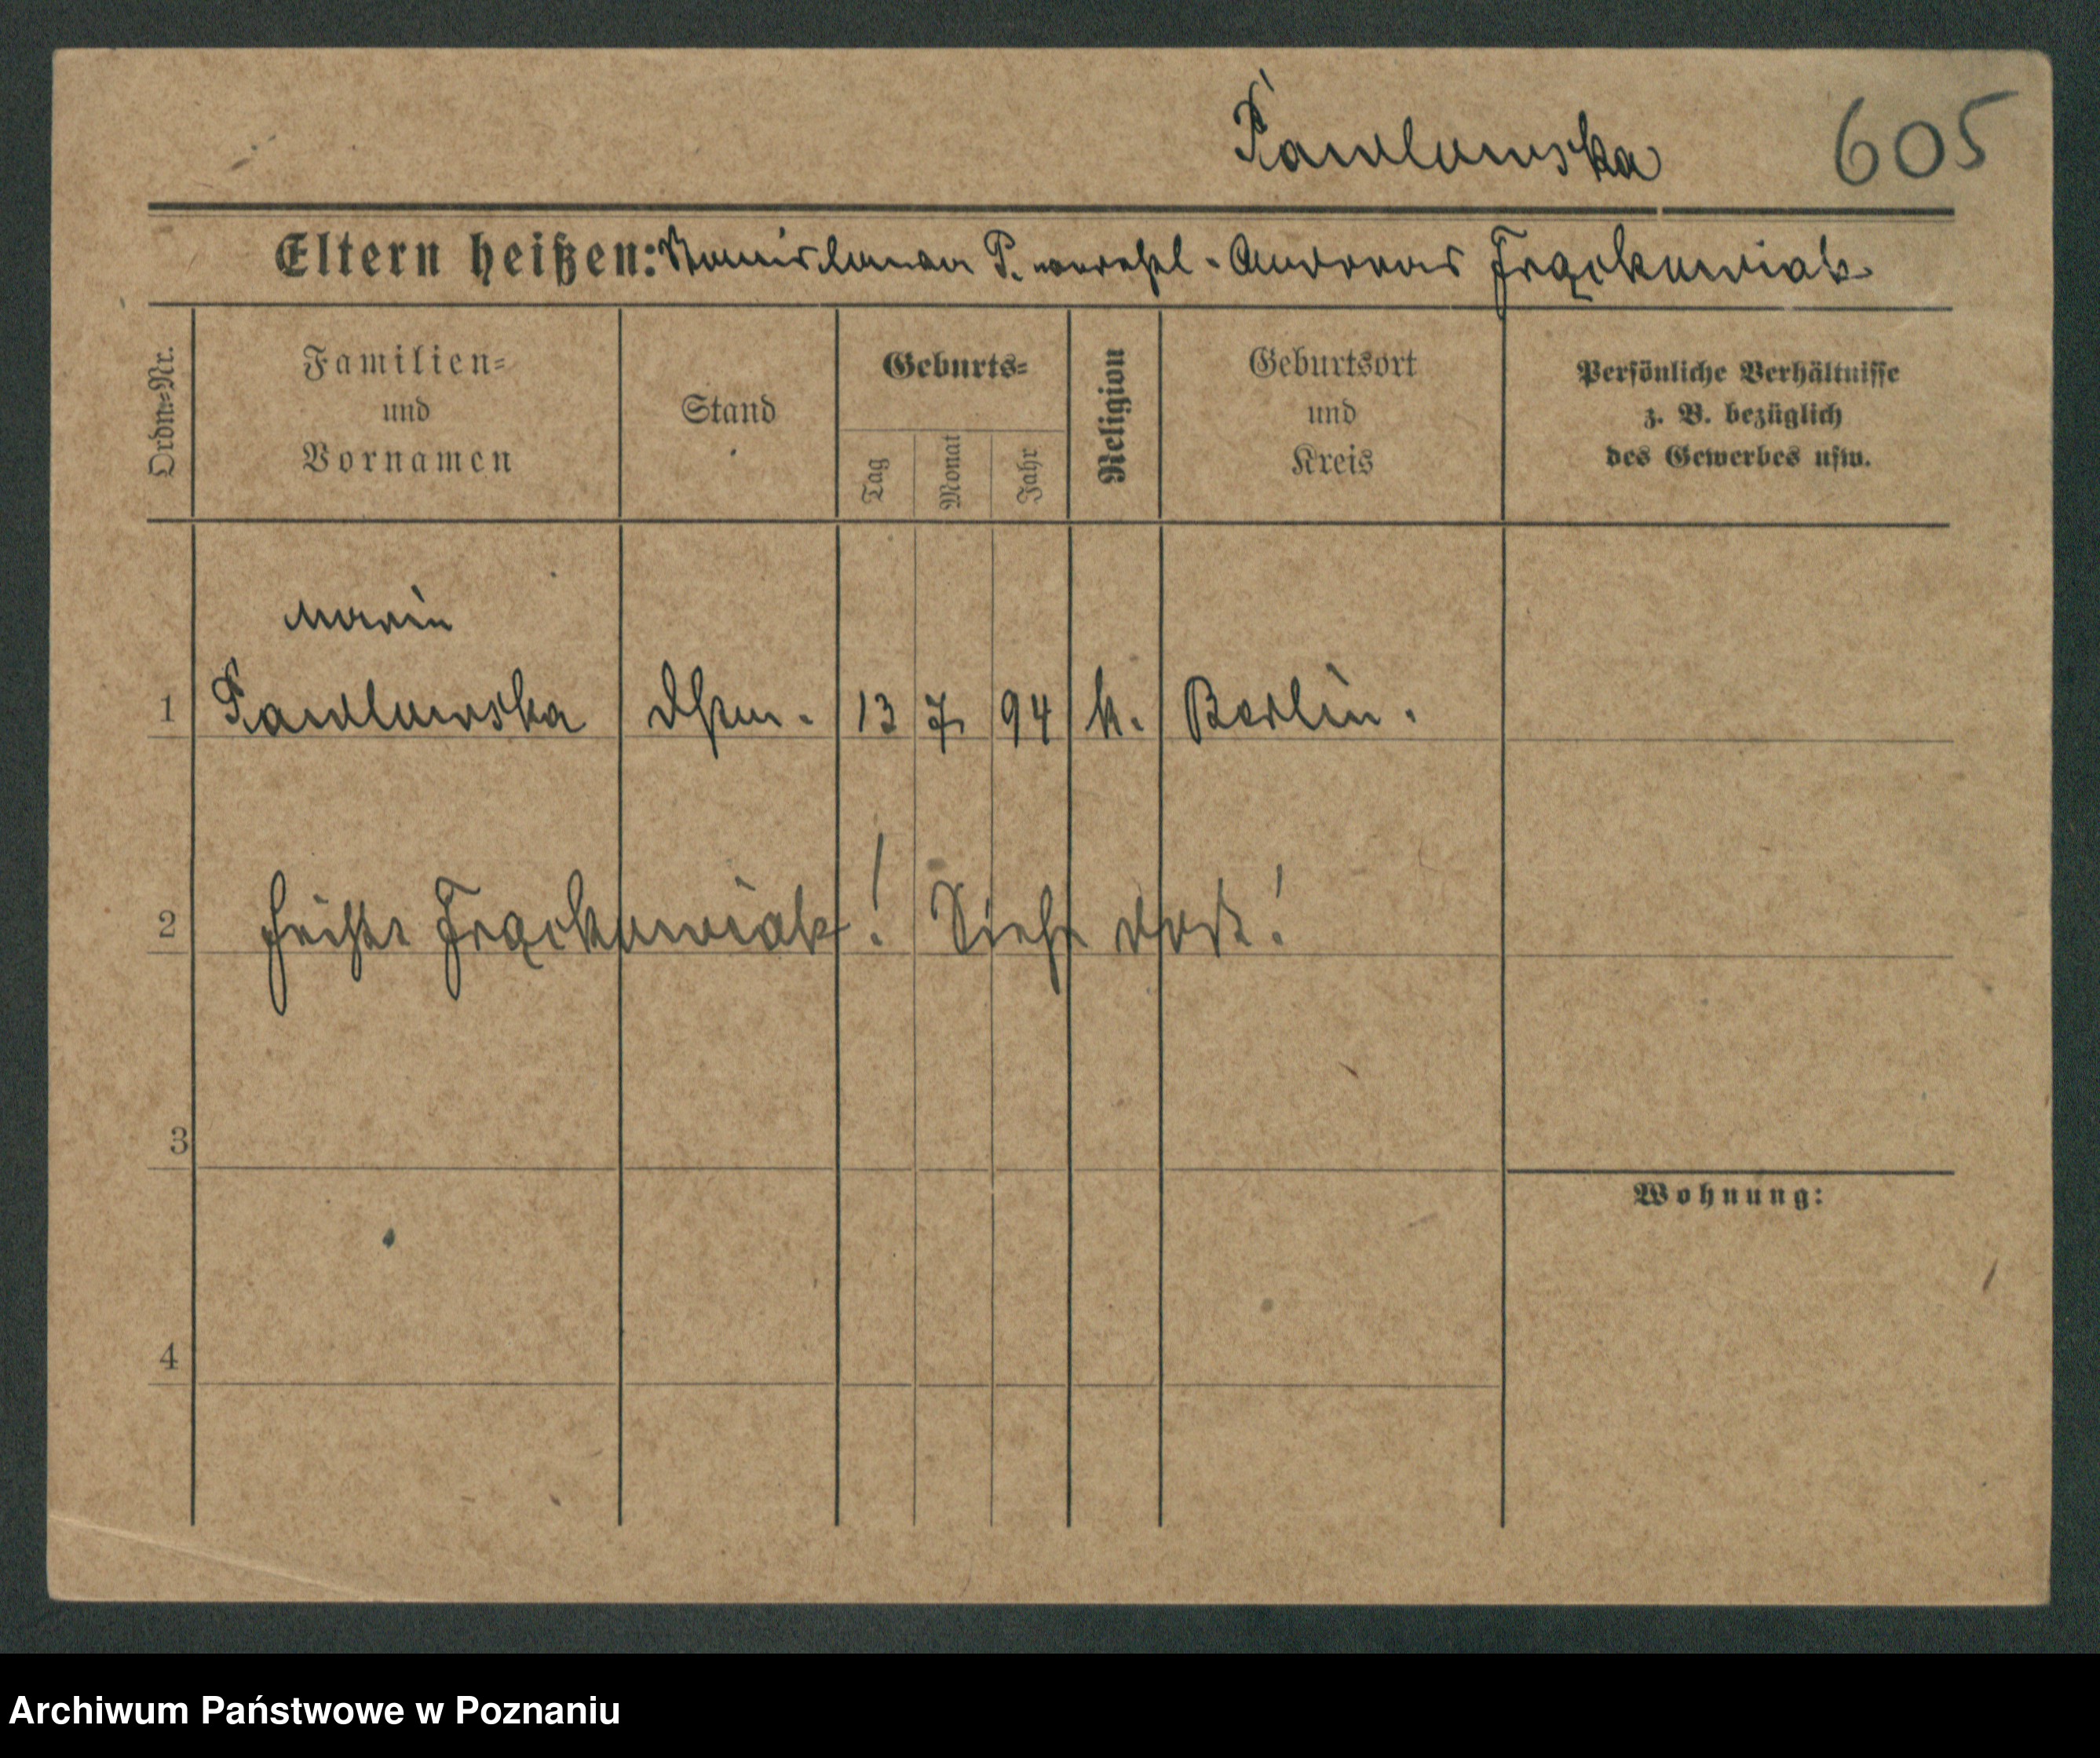 Pawlowska 605
Eltern heißen: Stanislawa P. verehel. Andreas Frąckowiak
Ordn.=Nr.
Familien=
und
Vornamen
Stand
Geburts=
Tag
Monat
Jahr
Religion
Geburtsort
und
Kreis
Persönliche Verhältnisse
z. B. bezüglich
des Gewerbes usw.
Marie
1 Pawlowska 13 7 94 k. Berlin.
2 heißt Frąckowiak! Siehe dort!
3
Wohnung:
4
Archiwum Państwowe w Poznaniu